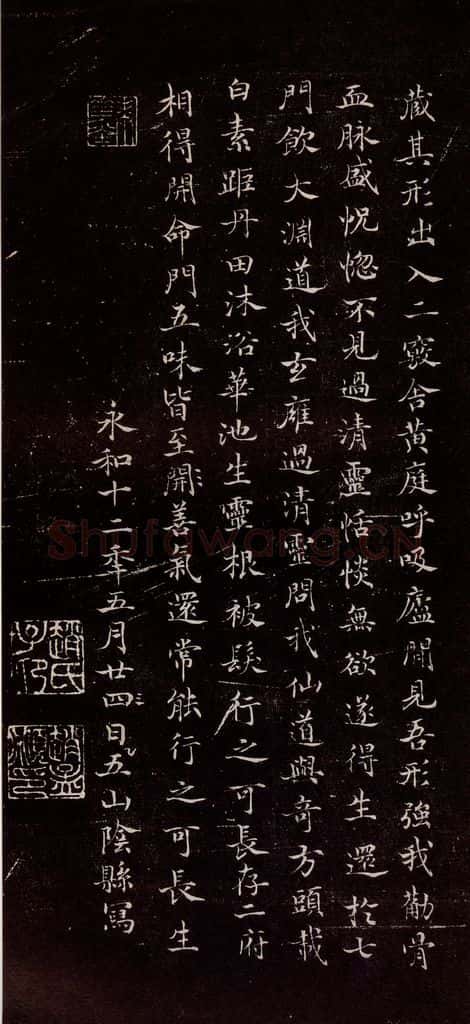 藏其形出入二竅舍黃庭呼吸廬間見吾形強我筋骨
血脉盛怳惚不見過清靈恬惔無欲遂得生還於七
門飲大淵道我玄雍過清靈問我仙道與奇方頭載
白素距丹田沐浴華池生靈根被髮行之可長存二府
相得開命門五味皆至開善氣還常能行之可長生
永和十二年五月廿四日五山陰縣寫
趙氏子昂
趙孟頫印
Shufawang.CN